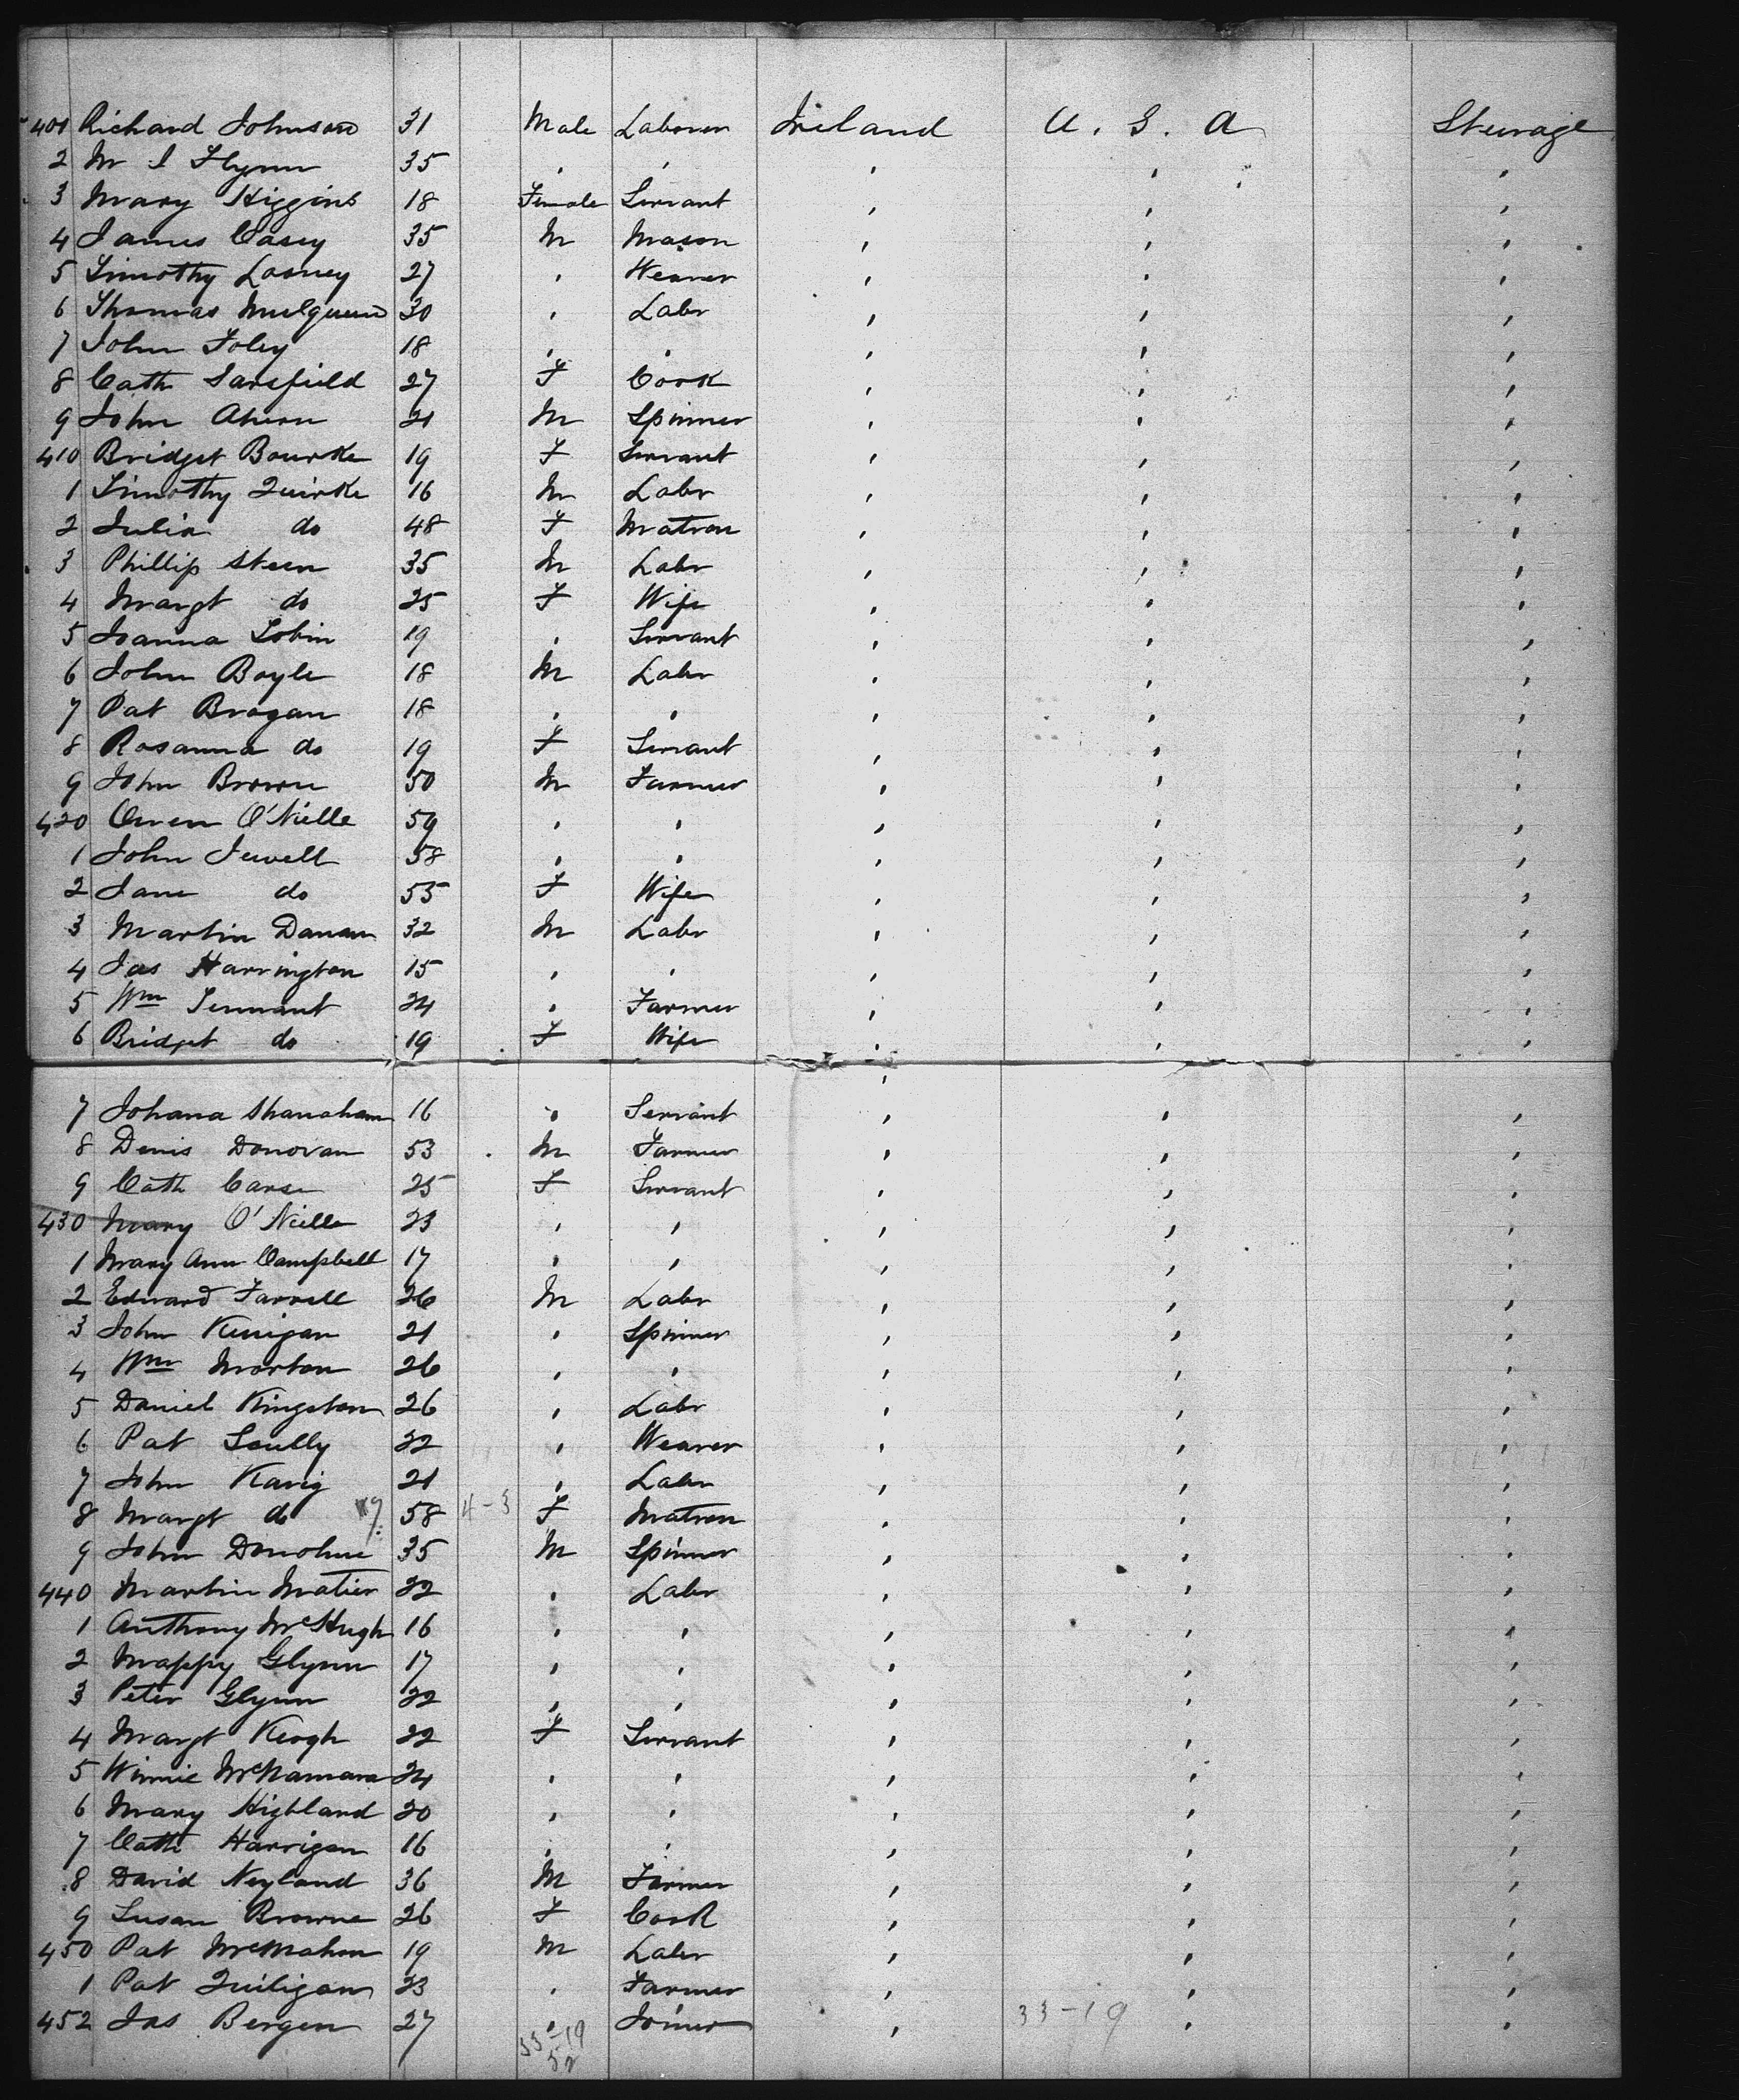 401 Richard Johnson 31 Male Laborer Ireland U. S. A Steerage
2 M I Flynn 35 , , , , ,
3 Mary Higgins 18 Female Servant , , ,
4 James Casey 35 M Mason , , ,
5 Timothy Looney 27 , Weaver , , ,
6 Thomas Mulqueen 30 , Labr , , ,
7 John Foley 18 , , , , ,
8 Cath Sarsfield 27 F Cook , , ,
9 John Ahern 21 M Spinner , , ,
410 Bridget Bourke 19 F Servant , , ,
1 Timothy Quirke 16 M Labr , , ,
2 Julia do 48 F Matron , , ,
3 Phillip Steen 35 M Labr , , ,
4 Margt do 25 F Wife , , ,
5 Joanna Tobin 19 , Servant , , ,
6 John Boyle 18 M Labr , , ,
7 Pat Brogan 18 , , , , ,
8 Rosanna do 19 F Servant , , ,
9 John Brown 50 M Farmer , , ,
420 Owen O'Nielle 59 , , , , ,
1 John Jewell 58 , , , , ,
2 Jane do 55 F Wife , , ,
3 Martin 32 M Labr , , ,
4 Jas Harrington 15 , , , , ,
5 Wm Tennant 24 , Farmer , , ,
6 Bridget do 19 F Wife , , ,
7 Johana Shanahan 16 , Servant , , ,
8 Denis Donovan 53 M Farmer , , ,
9 Cath Carse 25 F Servant , , ,
430 Mary O'Nielle 23 , , , , ,
1 Mary Ann Campbell 17 , , , , ,
2 Edward Farrell 26 M Labr , , ,
3 John Kerrigan 21 , Spinner , , ,
4 Wm Morton 26 , , , , ,
5 Daniel Kingston 26 , Labr , , ,
6 Pat Scully 22 , Weaver , , ,
7 John Kavig 21 , Labr , , ,
8 Margt do 58 4-3 F Matron , , ,
9 John Donohue 35 M Spinner , , ,
440 Martin Matier 22 , Labr , , ,
1 Anthony McHugh 16 , , , , ,
2 Mappy Glynn 17 , , , , ,
3 Peter Glynn 22 , , , , ,
4 Margt Keogh 22 F Servant , , ,
5 Winnie McNamara 24 , , , , ,
6 Mary Highland 20 , , , , ,
7 Cath Harrigan 16 , , , , ,
8 David Neyland 36 M Farmer , , ,
9 Susan Browne 26 F Cook , , ,
450 Pat McMahon 19 M Labr , , ,
1 Pat Quiligan 23 , Farmer , , ,
452 Jas Bergen 27 , Joiner , 33-19 , ,
33-19
52